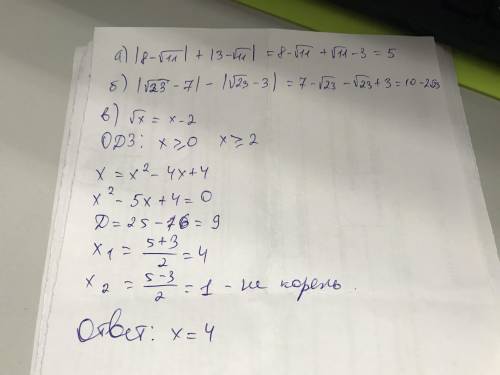 а) |8-√11| + |3-√11| = 8-√11 + √11-3 = 5
б) |√23 - 7| - |√23 - 3| = 7-√23 - √23+3 = 10-2√23
в) √x = x-2
ОДЗ: x ≥ 0 x ≥ 2
x = x² - 4x+4
x² - 5x + 4 = 0
D = 25 - 16 = 9
x₁ = (5+3)/2 = 4
x₂ = (5-3)/2 = 1 - не корень.
Ответ: x = 4